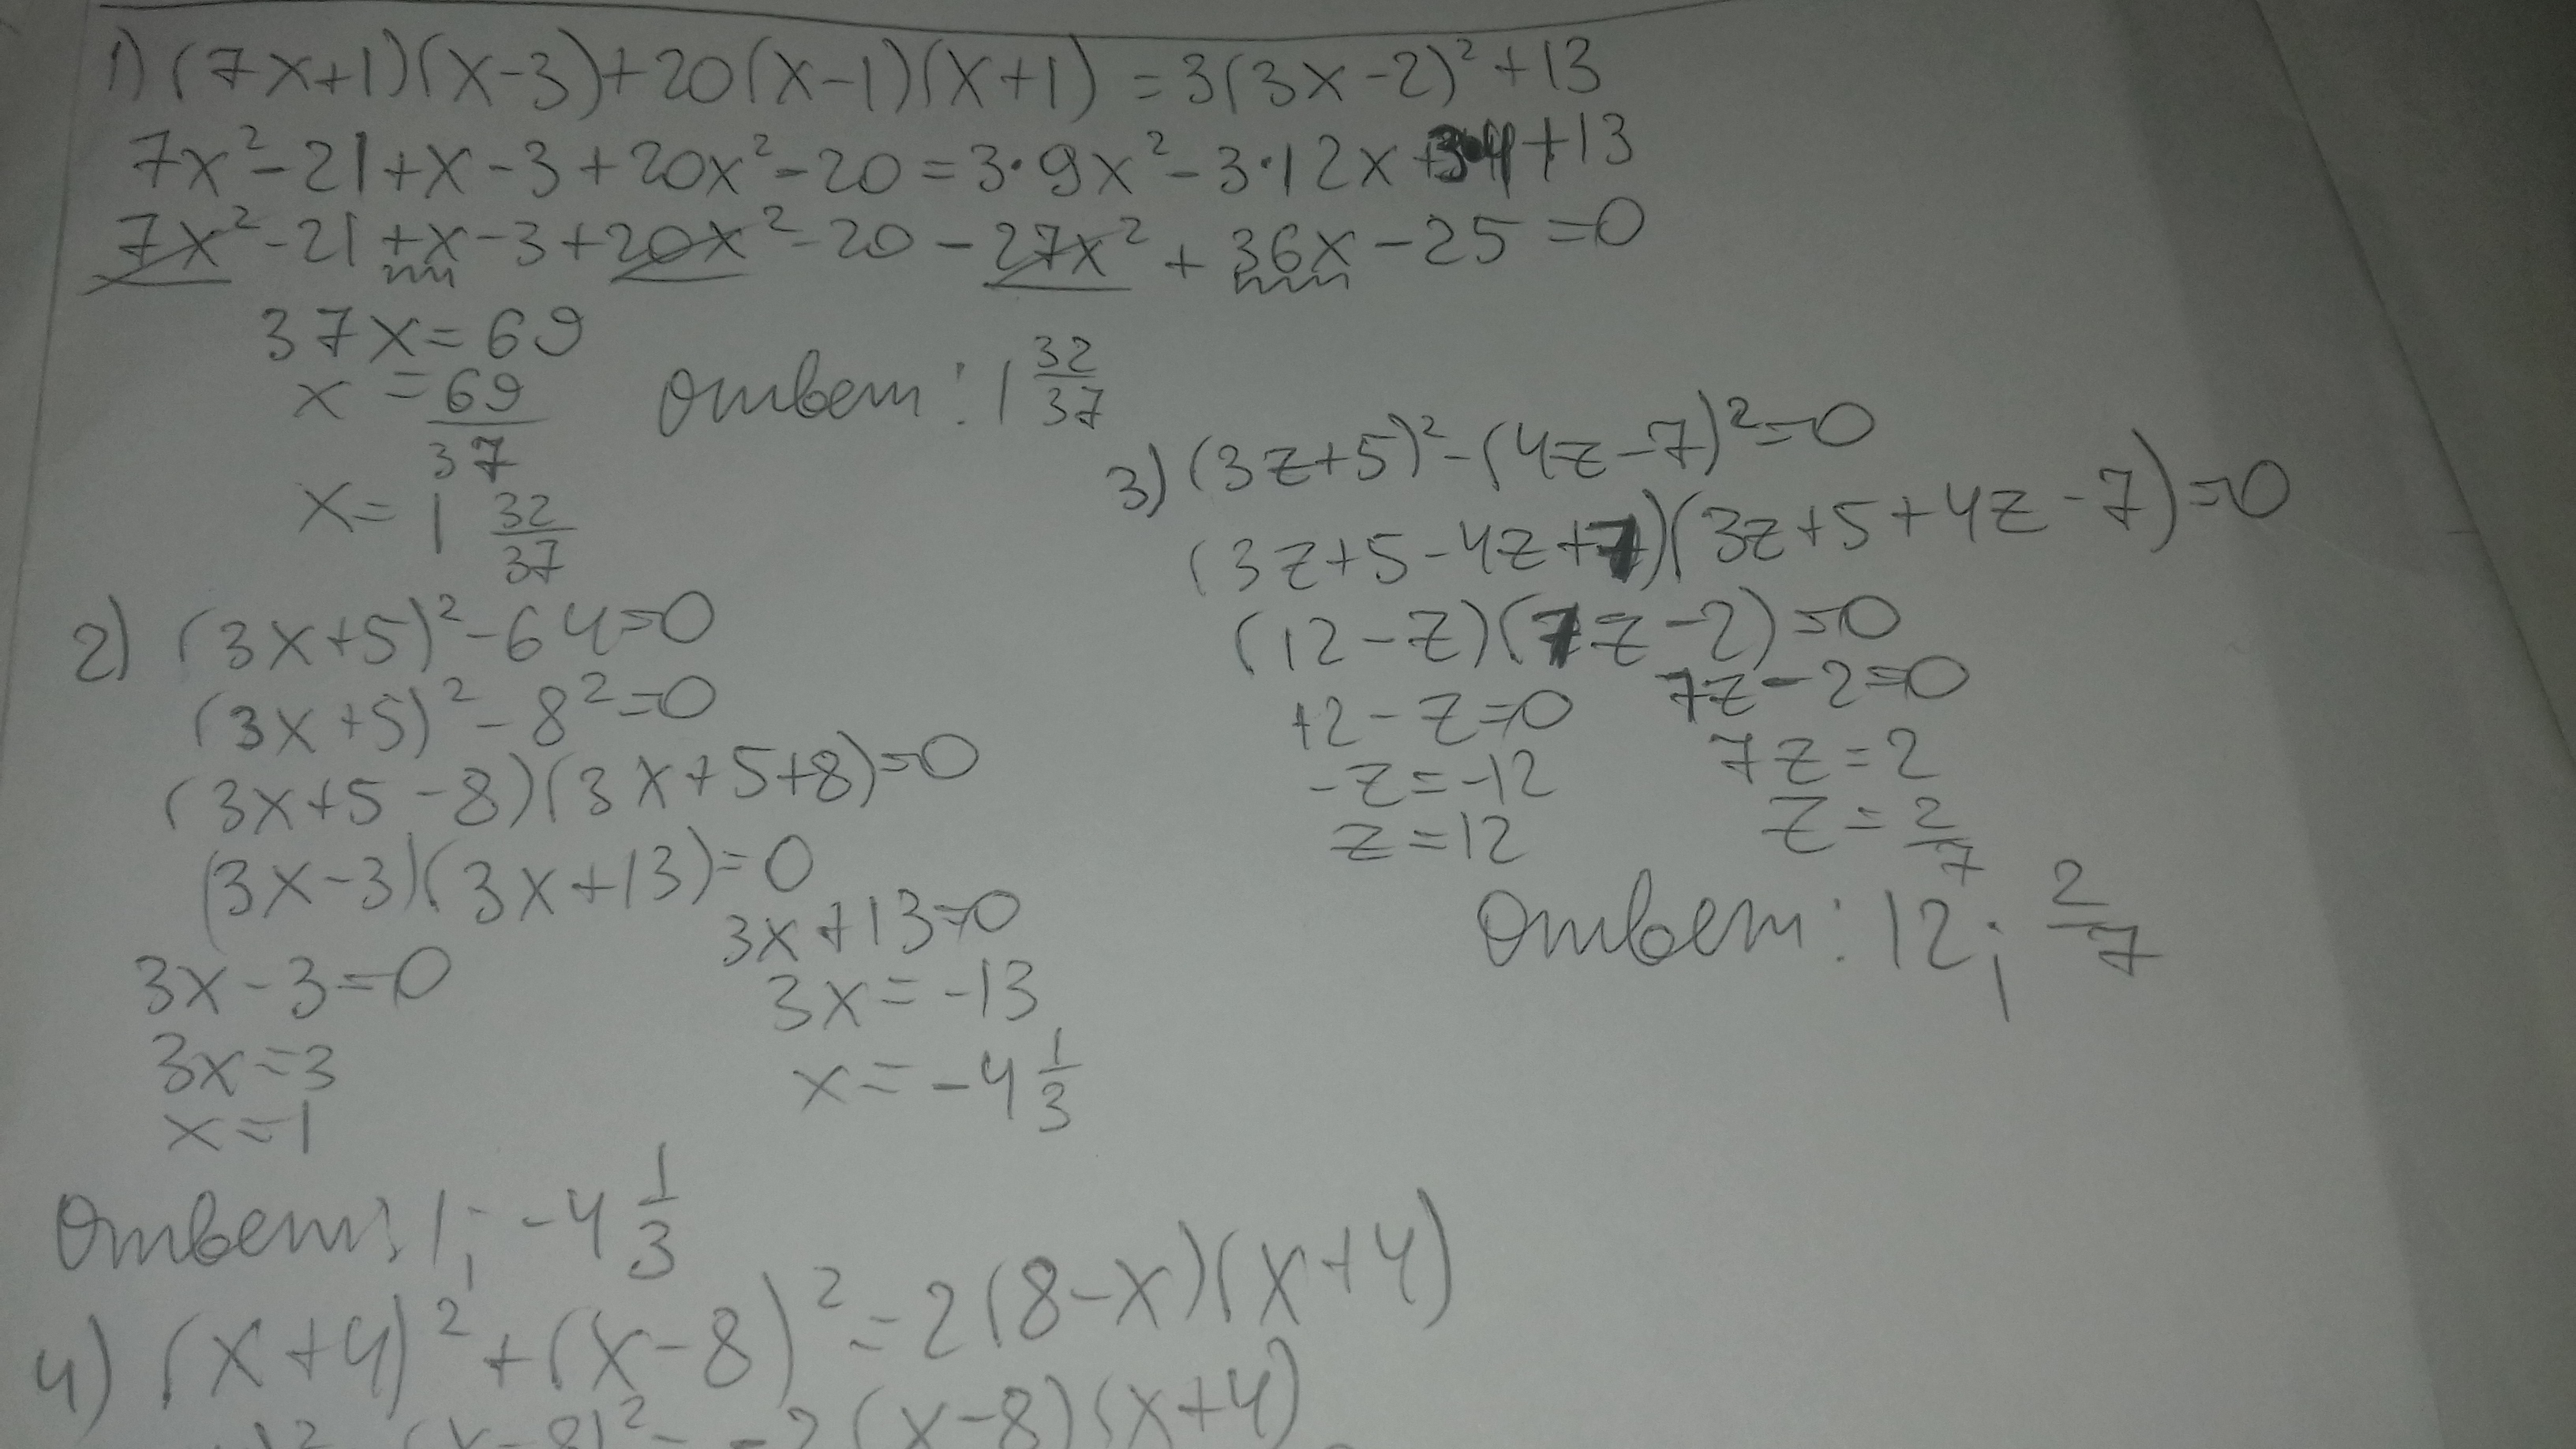 1) (7x+1)(x-3)+20(x-1)(x+1) = 3(3x-2)²+13
7x²-21+x-3+20x²-20=3·9x²-3·12x+3·4+13
7x²-21+x-3+20x²-20-27x²+36x-25=0
37x=69
x = 69/37
Ответ: 1 32/37
x= 1 32/37
2) (3x+5)²-64=0
(3x+5)²-8²=0
(3x+5-8)(3x+5+8)=0
(3x-3)(3x+13)=0
3x-3=0
3x=3
x=1
3x+13=0
3x=-13
x=-4 1/3
Ответ: 1; -4 1/3
3) (3z+5)²-(4z-7)²=0
(3z+5-4z+7)(3z+5+4z-7)=0
(12-z)(7z-2)=0
12-z=0
-z=-12
z=12
7z-2=0
7z=2
z=2/7
Ответ: 12; 2/7
4) (x+4)²+(x-8)²=2(8-x)(x+4)
(x-8)²= -2(x-8)(x+4)